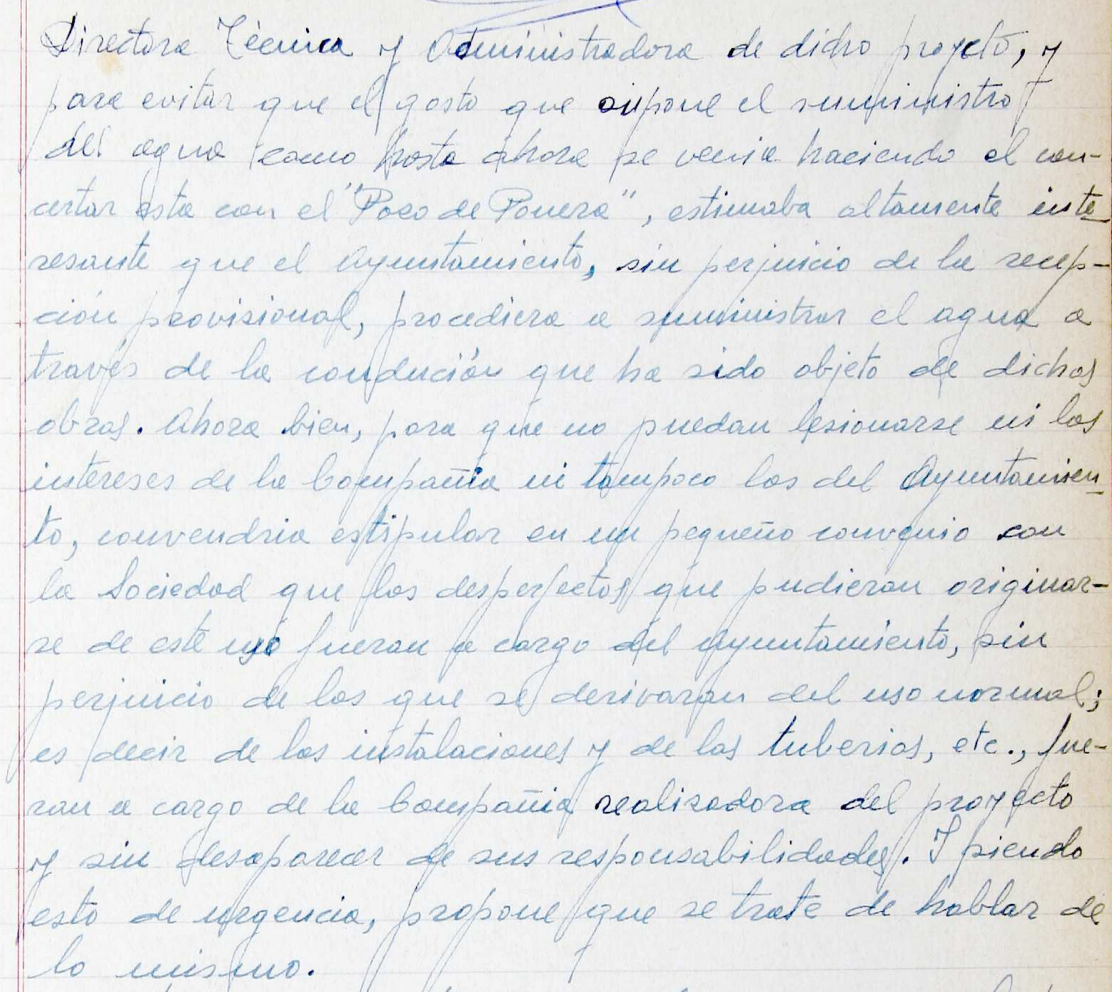 Directora Técnica y Administradora de dicho proyecto, y
para evitar que el gasto que supone el suministro
del agua como hasta ahora se venia haciendo al con-
certar esta con el "Poco de Ponera", estimaba altamente inte-
resante que el Ayuntamiento, sin perjuicio de la recep-
ción provisional, procediera a suministrar el agua a
través de la condución que ha sido objeto de dichas
obras. Ahora bien, para que no puedan lesionarse ni los
intereses de la Compañia ni tampoco los del Ayuntamien-
to, convendria estipular en un pequeño convenio con
la Sociedad que los desperfectos que pudieran originar-
se de este uso fueran a cargo del Ayuntamiento, sin
perjuicio de los que se derivaran del uso normal;
es decir de las instalaciones y de las tuberias, etc., fue-
ran a cargo de la Compañia realizadora del proyecto
y sin desaparecer de sus responsabilidades. Y siendo
esto de urgencia, propone que se trate de hablar de
lo mismo.